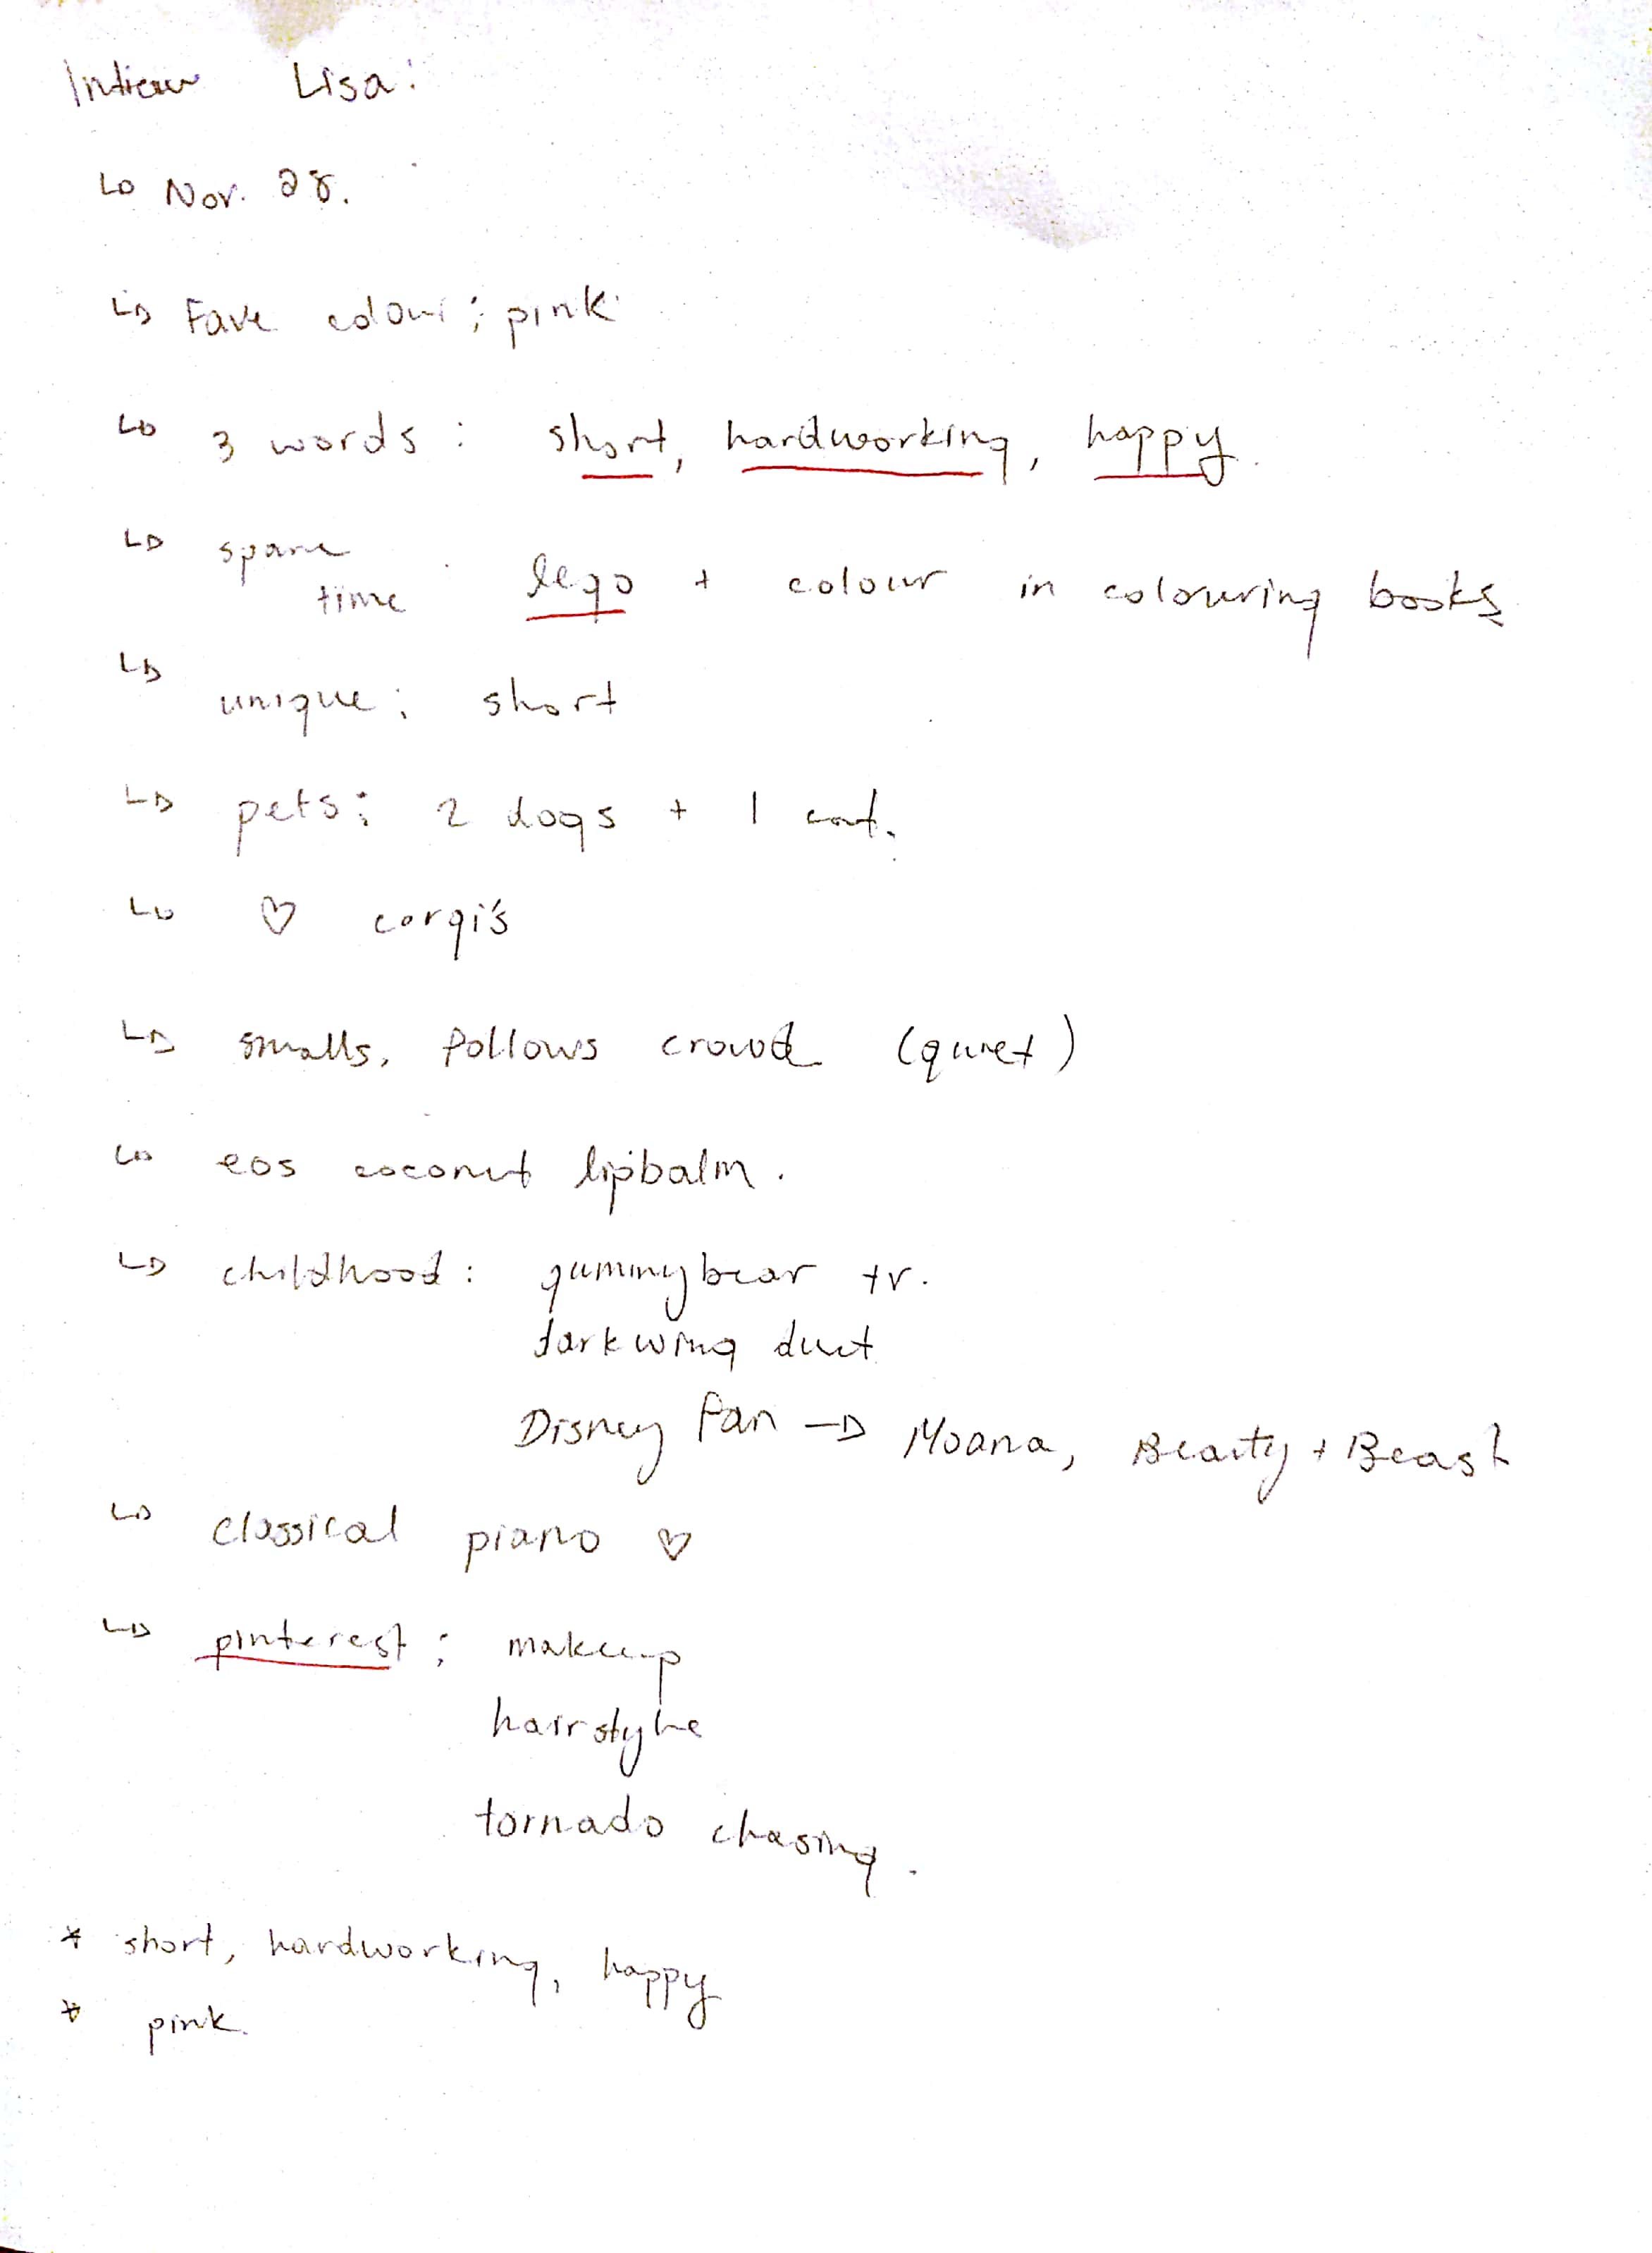 Intiew Lisa:
↳ Nov. 28.
↳ Fave colour: pink
↳ 3 words: short, hardworking, happy.
↳ spare
time : lego + colour in colouring books
↳ unique: short
↳ pets: 2 dogs + 1 cat.
↳ ♡ corgi's
↳ smalls, follows crowd (quiet)
↳ eos coconut lipbalm.
↳ childhood: gummybear tv.
darkwing duct
Disney fan → Moana, Beauty + Beast
↳ classical piano ♡
↳ pinterest: makeup
hairstyle
tornado chasing.
* short, hardworking, happy
* pink.